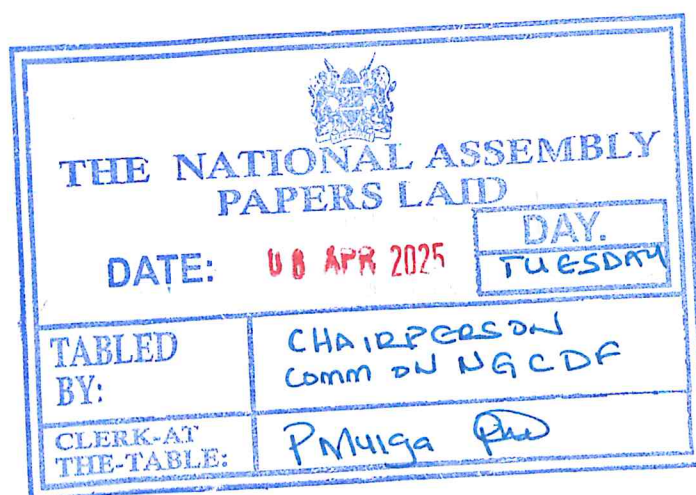 THE NATIONAL ASSEMBLY
PAPERS LAID
DATE: 08 APR 2025
DAY.
TUESDAY
TABLED
BY:
CHAIRPERSON
COMM ON NGCDF
CLERK-AT
THE-TABLE:
PMuiga